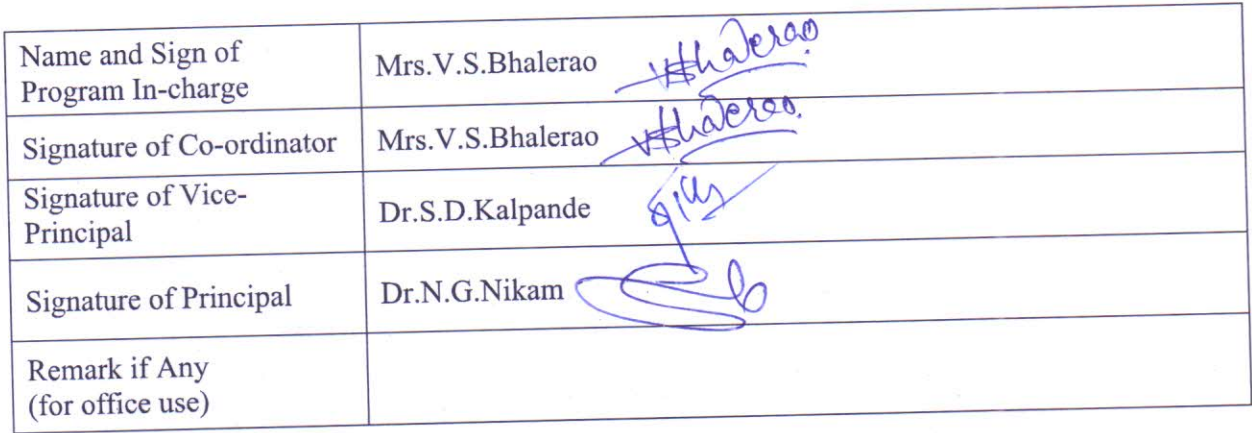 Name and Sign of
Program In-charge
Mrs.V.S.Bhalerao VSBhalerao
Signature of Co-ordinator
Mrs.V.S.Bhalerao VSBhalerao
Signature of Vice-
Principal
Dr.S.D.Kalpande
Signature of Principal
Dr.N.G.Nikam
Remark if Any
(for office use)